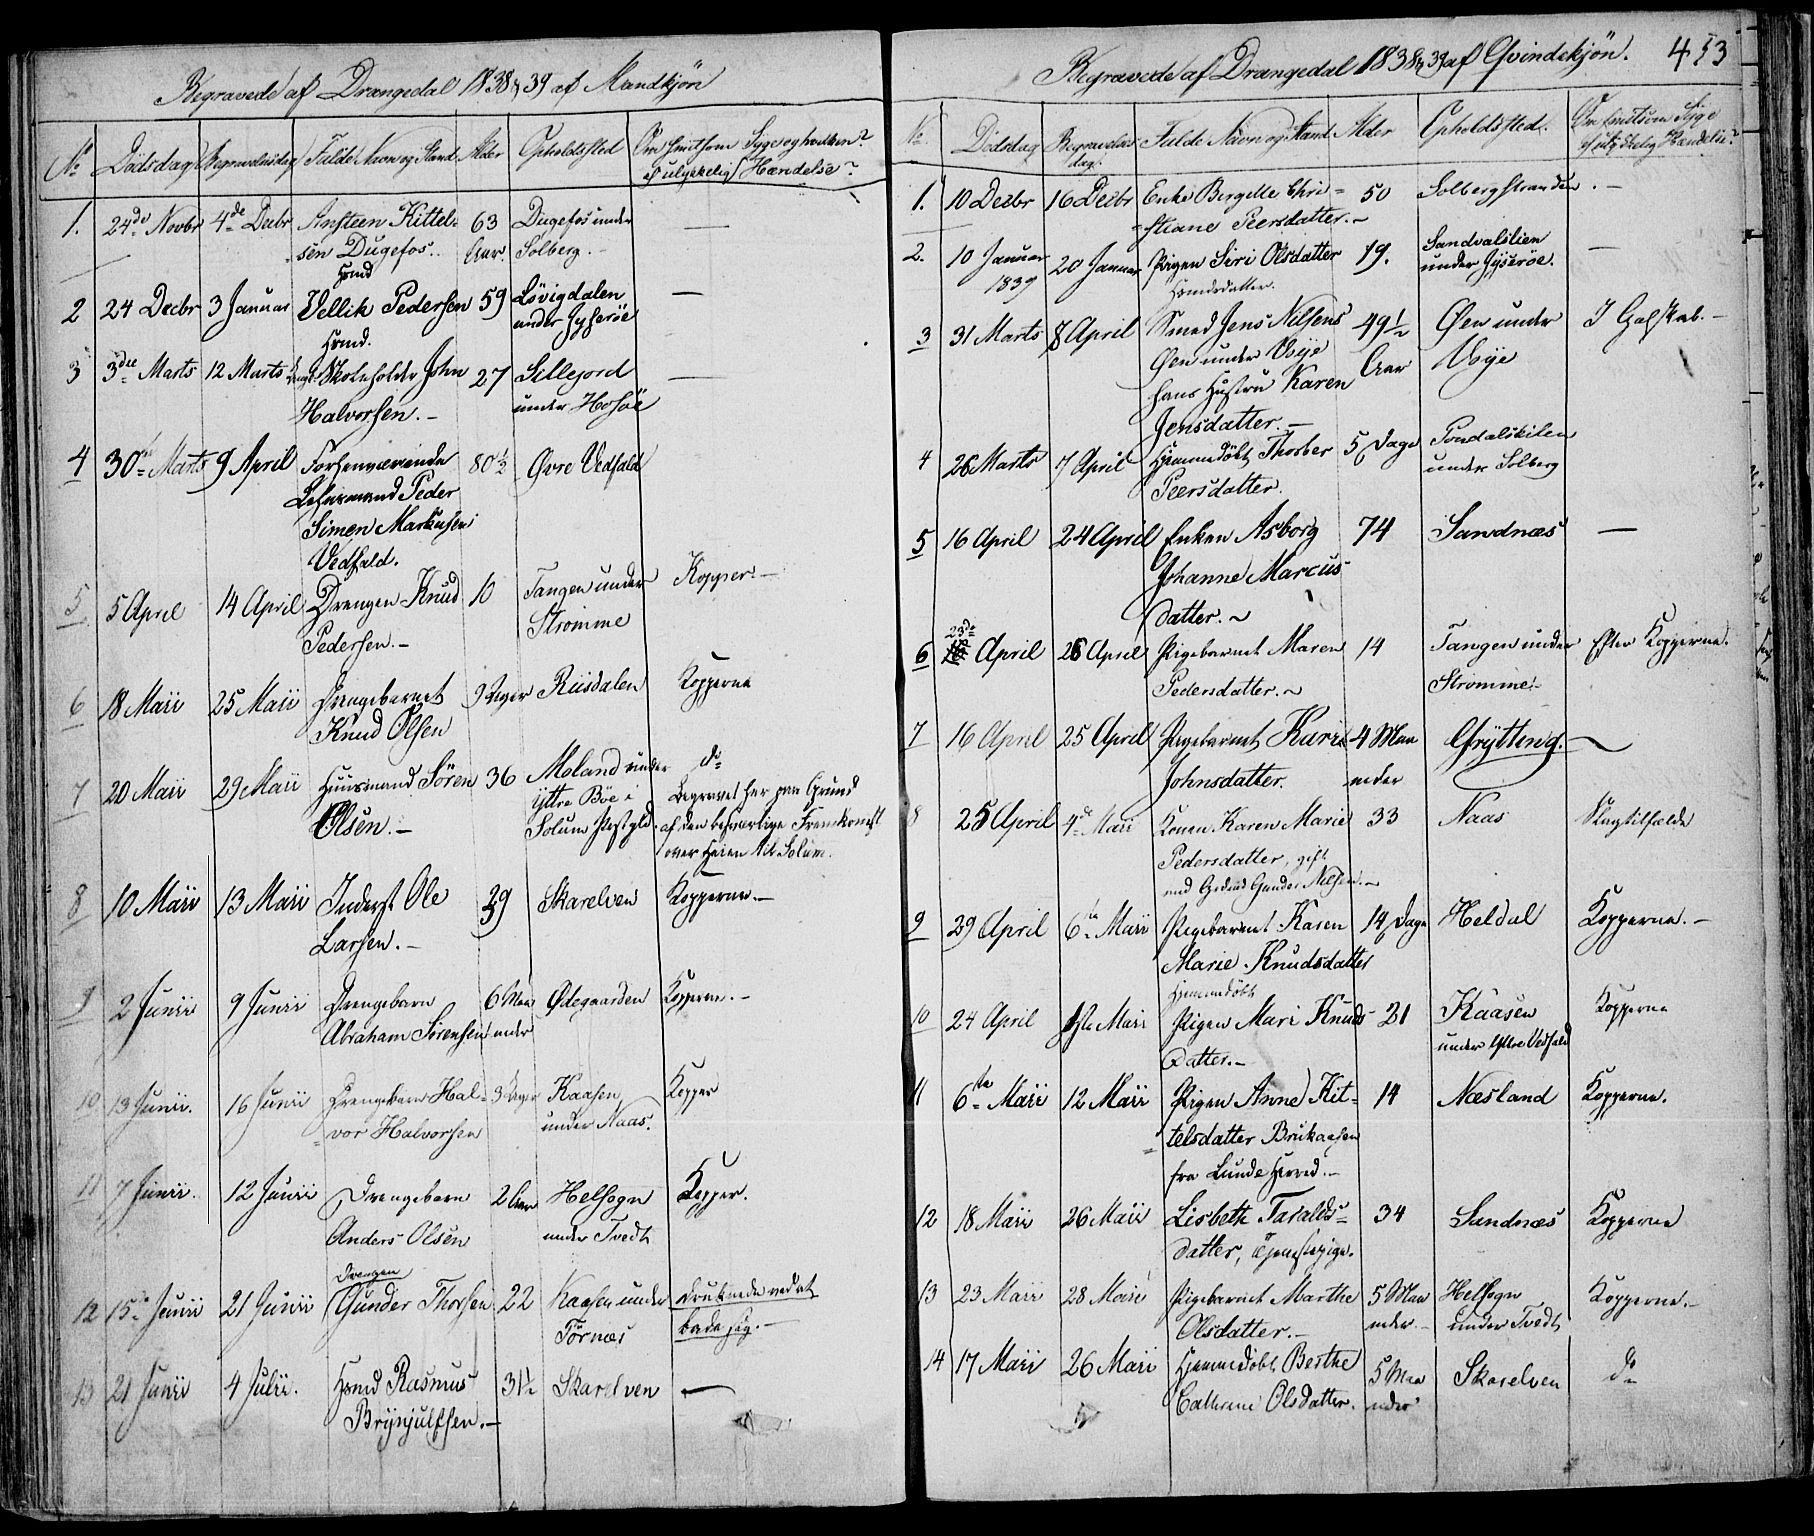 Begravede af Drangedal 1838 & 39 af Mandkjøn
No Dødsdag Begravelsesdag Fulde Navn og Stand. Alder Opholdssted Om smitsom Syge og hvilken?
el ulykkelig Hændelse?
1. 24de Novbr 4de Decbr Ansteen Kittel= 63 Dugefos under —
sen Dugefos.. Aar. Solberg.
Hsmd
2 24 Decbr 3 Januar Vellik Pedersen 59 Løvigdalen —
Hsmd. under
3 3die Marts 12 Marts Skoleholder John 27 Sillejord —
Halvorsen. – under Hosøe
4 30te Marts 9 April Forhenværende 80½ Øvre Vedfald
Lehnsmand Peder
Simen Markusen
Vedfald.
5 5 April 14 April Drengen Knud 10 Tangen under Kopper. –
Pedersen. – Strømme
6 18 Maii 25 Maii Drengebarnet 9 Uger Riisdalen Kopperne
Knud Olsen
7 20 Maii 29 Maii Huusmand Sören 36 Moland under do
Olsen. – Yttre Böe i Begravet her paa Grund
Solum Præstgld. af den besværlige Fremkomst
over Heien til Solum.
8 10 Maii 13 Maii Inderst Ole 29 Skarelven Kopperne. –
Larsen. –
9 2 Junii 9 Junii Drengebarn 6 Maa Ødegaarden Kopperne. –
Abraham Sörensen neder
10 13 Junii. 16 Junii Drengebarn Hal= 3 Uger Kaasen Kopper
=vor Halvorsen under Naas.
11 7 Junii. 12 Junii Drengebarn 2 Aar Helsogn Kopper.
Anders Olsen under Tvedt
Drengen
12 15de Junii 21 Junii Gunder Thorsen 22 Kaasen under druknede ved at
Törnæs bade sig. –
13 21 Junii 4 Julii. Hsmd Rasmus 31½ Skarelven —
Brynjulfsen. –
Begravede af Drangedal 1838 & 39 af Qvindekjön. 453
No. Dödsdag Begravelses Fulde Navn og Stand Alder Opholdssted. Om smitsom Syge
dag. el ulykkelig Hændelse?
1. 10 Decbr 16 Decbr Enke Bergette Chri= 50 Solbergstranden . –
=stiane Peersdatter. ~
2. 10 Januar 20 Januar Pigen Siri Olsdatter 19. Sandvalslien —
1839 Hsmdsdatter. under
3 31 Marts 8 April Smed Jens Nilsens 49½ Øen under I Galskab. –
Øen under Voje Aar Voje
hans Hustru Karen
Jensdatter. –
4 26 Marts 7 April Hjemmedöbt Thorber 5 Dage
Peersdatter. under Solberg
5 16 April 24 April Enken Asborg 74 Sandnæs —
Johanne Marcus
datter. ~
23de
6 April 26 April Pigebarnet Maren 14 Tangen under Efter Kopperne.
Pedersdatter. ~ Strömme. –
7 16 April 25 April Pigebarnet Kari 4 Maa Gryting.
Johnsdatter. neder
8 25 April 4de Maii Konen Karen Marie 33 Naas Slagtilfælde
Pedersdatter, gift
med Gunder Nielsen. ~
9 29 April 6te Maii Pigebarnet Karen 14 Dage Heldal Kopperne. –
Marie Knudsdatter
Hjemmedöbt
10 24 April Maii Pigen Mari Knuds 21 Kaasen Kopperne
datter. – under Yttre Vedfald
11 6te Maii 12 Maii Pigen Anne Kit= 14 Næsland Kopperne.
=telsdatter Brukaasen
fra Lunde Herred. –
12 18 Maii 26 Maii Lisbeth Taralds= 34 Sandnæs Kopperne
datter, Tjenestepige.
13 23 Maii 28 Maii Pigebarnet Marthe 5 Maa Helsogn Kopperne. –
Olsdatter. – neder – under Tvedt
14 17 Maii 26 Maii Hjemmedöbt Berthe 5 Maa Skarelven do
Cathrine Olsdatter. neder